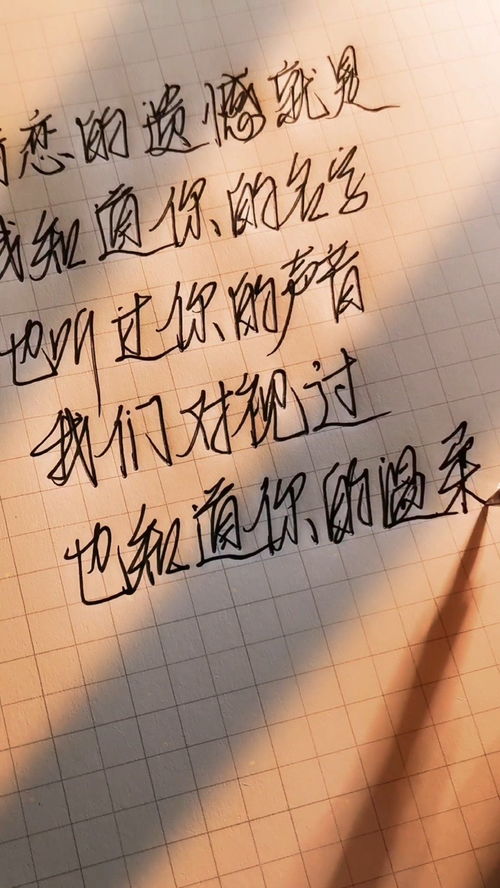 恋的遗憾就是
我知道你的名字
也叫过你的声音
我们对视过
也知道你的温柔